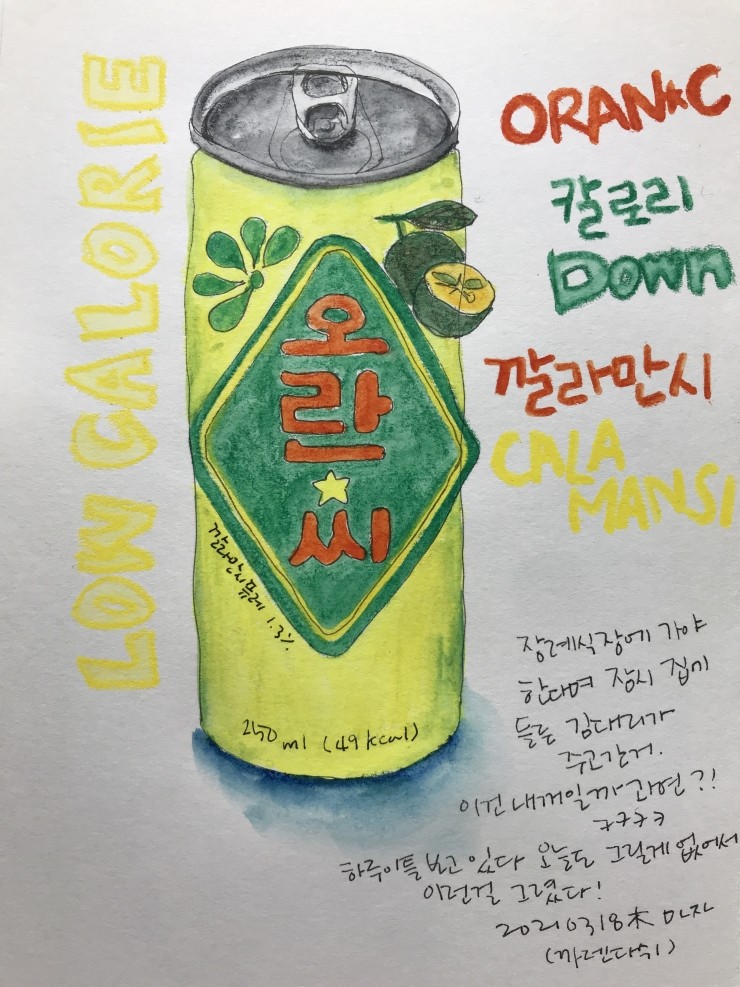 LOW CALORIE
ORAN★C
칼로리
DOWN
깔라만시
CALA
MANSI
오
란
★
씨
깔라만시퓨레 1.3%
250 ml (49 kcal)
장례식장에 가야
한다며 잠시 집에
들른 김대리가
주고간거.
이건 내꺼일까 과연?!
ㅋㅋㅋㅋ
하루이틀 보고 있다 오늘도 그릴게 없어서
이런걸 그렸다!
20210318木 마자
(까렌다쉬)